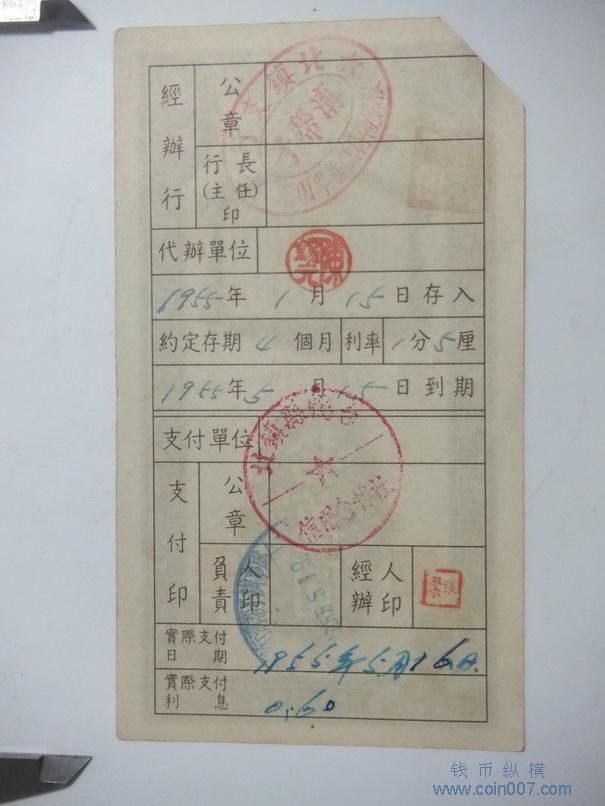 經辦行
公章
行長
(主任)
印
代辦單位
1955年1月15日存入
約定存期4個月 利率1分5厘
1955年5月15日到期
支付單位
支付印
公章
負責人印
經辦人印
張
實際支付日期
1955年5月16日.
實際支付利息
0.60
信用合作社
钱币纵横
www.coin007.com